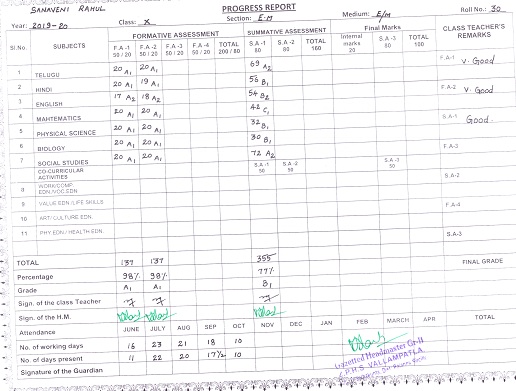 SANAVENI RAHUL PROGRESS REPORT
Year: 2019-20 Class: X Section: E.M Medium: E/M Roll No.: 30
Sl.No. SUBJECTS FORMATIVE ASSESSMENT SUMMATIVE ASSESSMENT Final Marks CLASS TEACHER'S REMARKS
F.A-1 50/20 F.A-2 50/20 F.A-3 50/20 F.A-4 50/20 TOTAL 200/80 S.A-1 80 S.A-2 80 TOTAL 160 Internal marks 20 S.A-3 80 TOTAL 100
1 TELUGU 20 A1 20 A1 69 A2 F.A-1 V. Good
2 HINDI 20 A1 19 A1 56 B1 F.A-2 V. Good
3 ENGLISH 17 A2 18 A2 54 B2
4 MAHTEMATICS 20 A1 20 A1 42 C1 S.A-1 Good
5 PHYSICAL SCIENCE 20 A1 20 A1 32 B1
6 BIOLOGY 20 A1 20 A1 30 B1 F.A-3
7 SOCIAL STUDIES 20 A1 20 A1 72 A2
CO-CURRICULAR ACTIVITIES S.A-1 50 S.A-2 50 S.A-3 50 S.A-2
8 WORK/COMP. EDN./VOC.EDN
9 VALUE EDN / LIFE SKILLS F.A-4
10 ART/ CULTURE EDN.
11 PHY.EDN / HEALTH EDN. S.A-3
TOTAL 137 137 355 FINAL GRADE
Percentage 98% 98% 77%
Grade A1 A1 B1
Sign. of the class Teacher
Sign. of the H.M.
Attendance JUNE JULY AUG SEP OCT NOV DEC JAN FEB MARCH APR TOTAL
No. of working days 16 23 21 18 10
No. of days present 11 22 20 17½ 10
Signature of the Guardian
Gazetted Headmaster Gr-II
Z.P.H.S. VALLAMPATLA